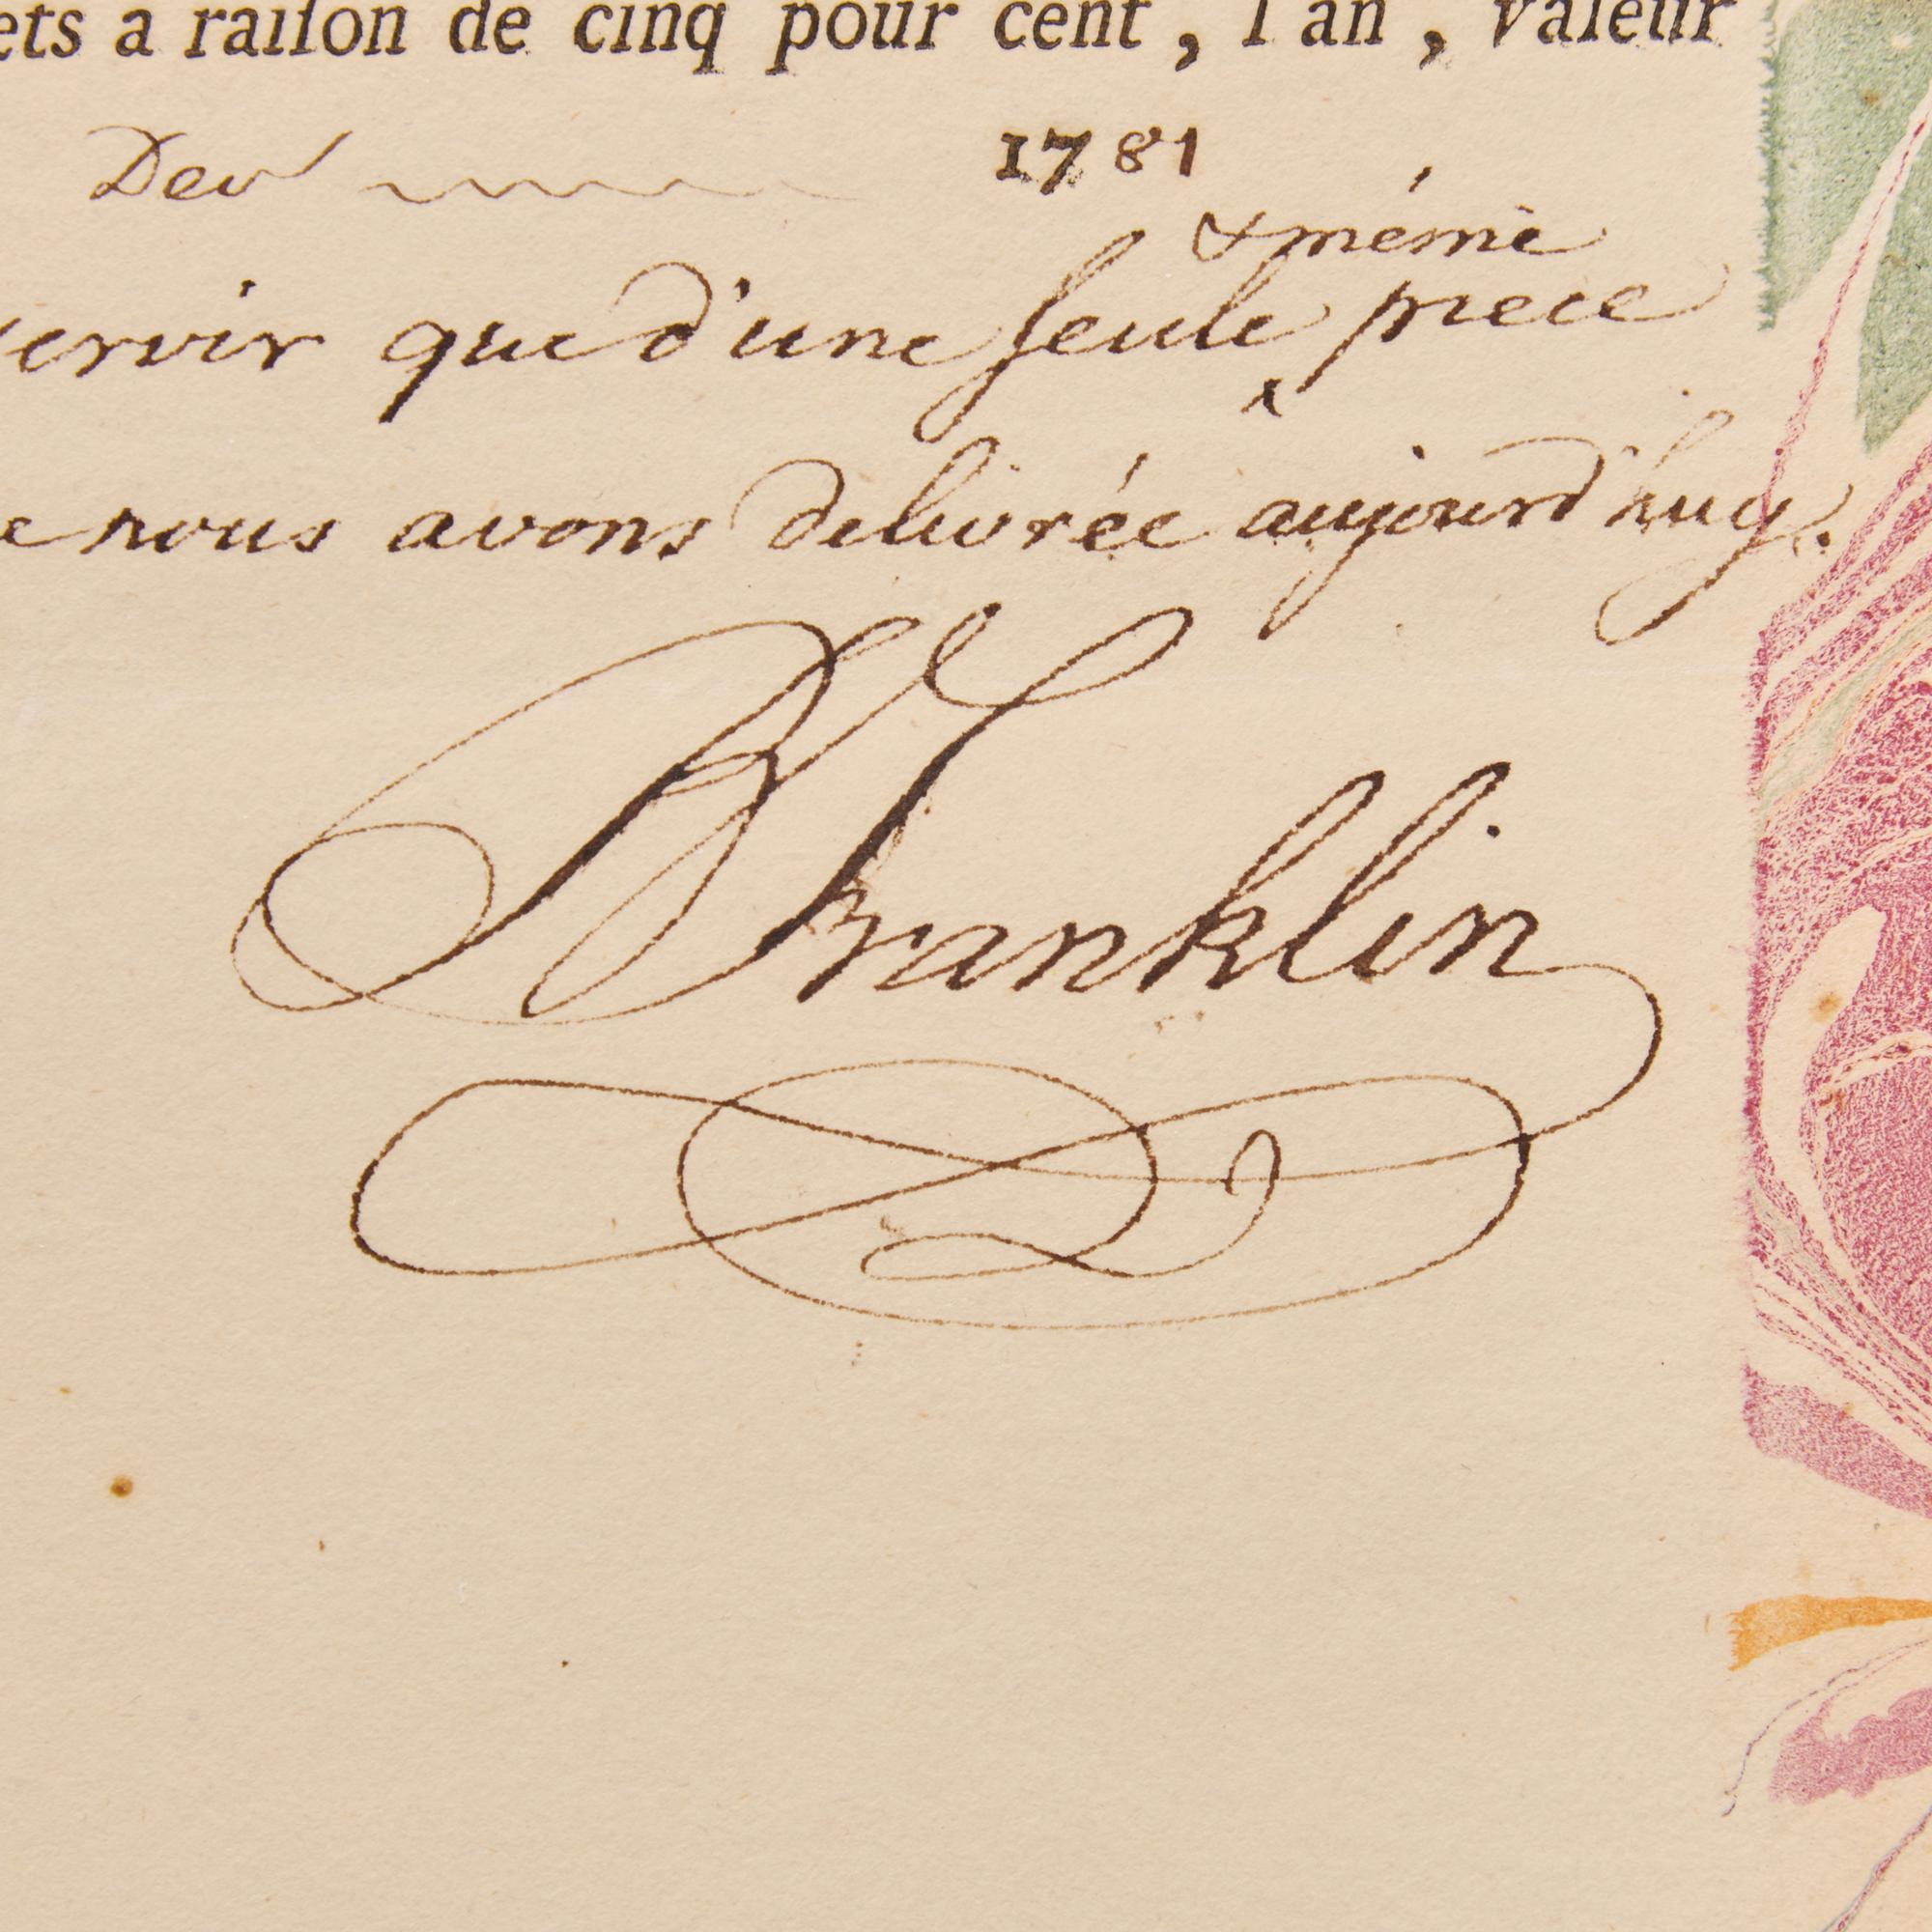 ets a raiſon de cinq pour cent, l'an, valeur
1781
& même
servir que d'une ſeule piece
e nous avons delivrée aujourd'huy.
B Franklin